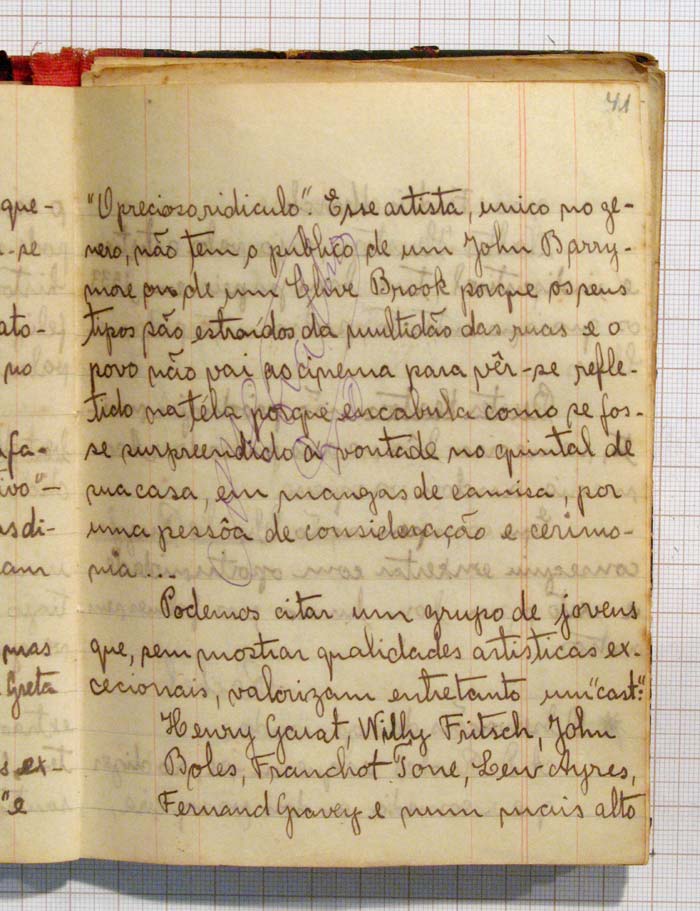 41
"O precioso ridiculo". Esse artista, unico no ge-
nero, não tem o publico de um John Barry-
more ou de um Clive Brook porque os seus
tipos são estraídos da multidão das ruas e o
povo não vai ao cinema para vêr-se refle-
tido na téla porque encabula como se fos-
se surpreendido á vontade no quintal de
sua casa, em mangas de camisa, por
uma pessôa de consideração e cerimo-
nia...
Podemos citar um grupo de jovens
que, sem mostrar qualidades artisticas ex-
cecionais, valorizam entretanto um "cast".
Henry Garat, Willy Fritsch, John
Boles, Franchot Tone, Lew Ayres,
Fernand Gravey e num mais alto